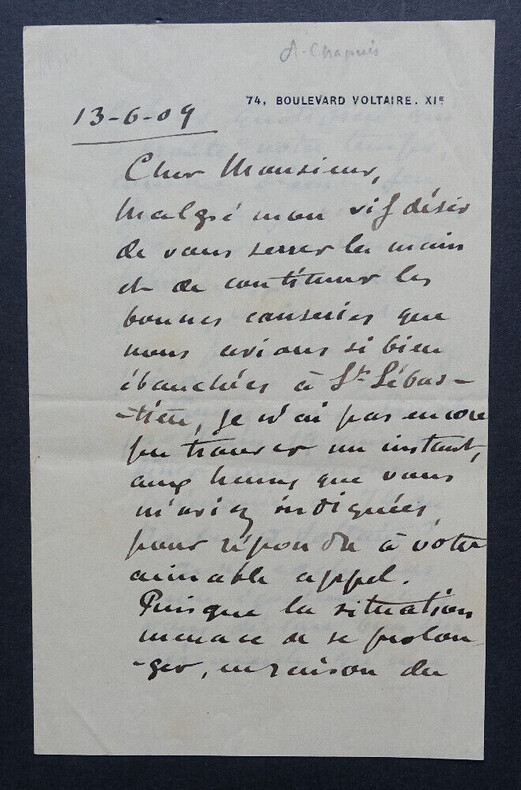 A. Chapuis
74, BOULEVARD VOLTAIRE. XIE
13-6-09
Cher Monsieur,
Malgré mon vif désir
de vous serrer la main
et de continuer les
bonnes causeries que
nous avions si bien
ébauchées à St Sébas-
-tien, je n'ai pas encore
pu trouver un instant,
aux heures que vous
m'aviez indiquées
pour répondre à votre
aimable appel.
Puisque la situation
menace de se prolon
-ger, en raison du